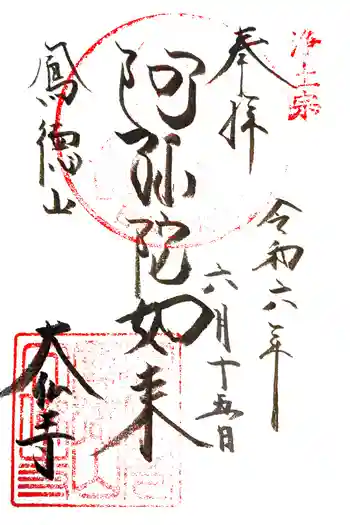 浄土宗
奉拝
令和六年
六月十五日
阿弥陀如来
鳳徳山
大仙寺